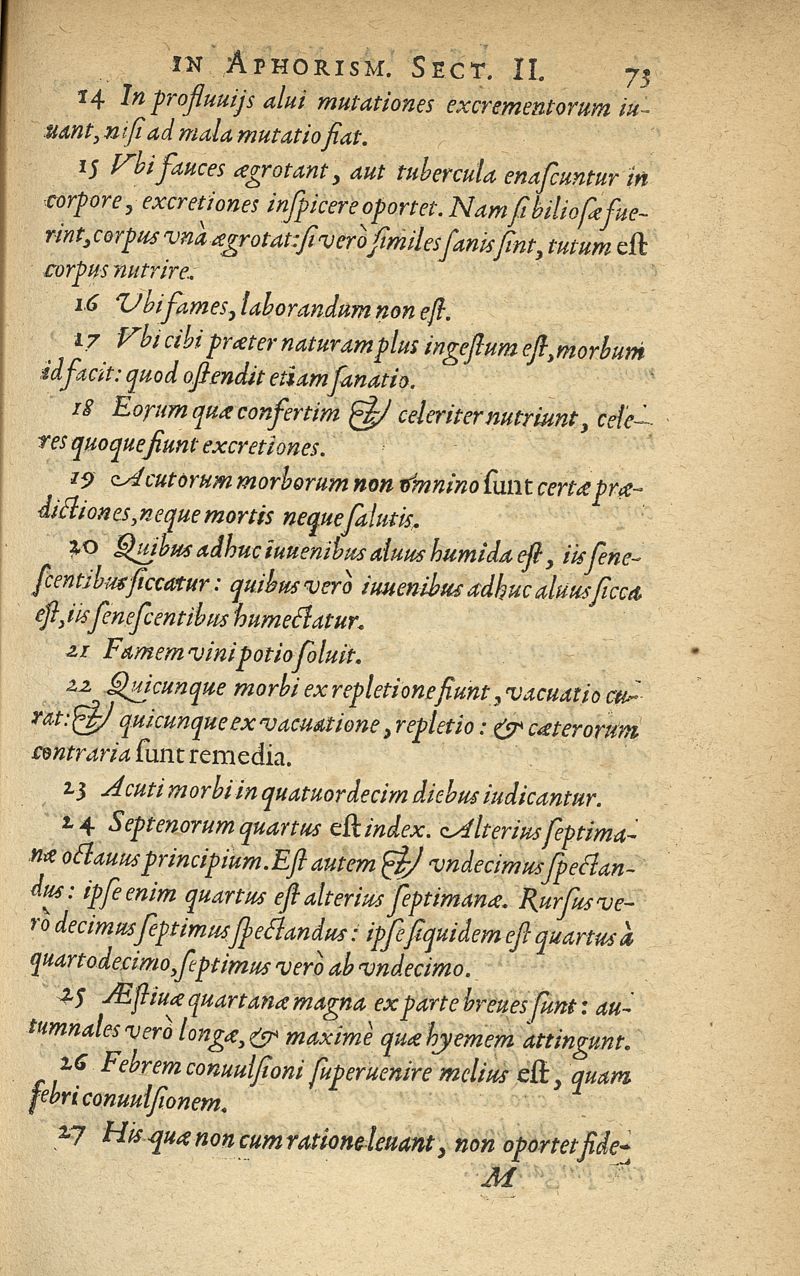 IN APHORISM. SECT. II. 73
14 In profluuijs alui mutationes excrementorum iu-
uant, nisi ad mala mutatio fiat.
15 Vbi fauces ægrotant, aut tubercula enaſcuntur in
corpore, excretiones inſpicere oportet. Nam ſi bilioſæ fue-
rint, corpus vnà ægrotat: ſi verò ſimiles ſanis ſint, tutum eſt
corpus nutrire.
16 Vbi fames, laborandum non eſt.
17 Vbi cibi præter naturam plus ingeſtum eſt, morbum
id facit: quod oſtendit etiam ſanatio.
18 Eorum quæ confertim & celeriter nutriunt, cele-
res quoque fiunt excretiones.
19 Acutorum morborum non omnino ſunt certæ præ-
dictiones, neque mortis neque ſalutis.
20 Quibus adhuc iuuenibus aluus humida eſt, iis ſene-
ſcentibus ſiccatur: quibus verò iuuenibus adhuc aluus ſicca
eſt, iis ſeneſcentibus humectatur.
21 Famem vini potio ſoluit.
22 Quicunque morbi ex repletione fiunt, vacuatio cu-
rat: & quicunque ex vacuatione, repletio: & cæterorum
contraria ſunt remedia.
23 Acuti morbi in quatuordecim diebus iudicantur.
24 Septenorum quartus eſt index. Alterius ſeptima-
næ octauus principium. Eſt autem & vndecimus ſpectan-
dus: ipſe enim quartus eſt alterius ſeptimanæ. Rurſus ve-
rò decimus ſeptimus ſpectandus: ipſe ſiquidem eſt quartus à
quartodecimo, ſeptimus verò ab vndecimo.
25 Æſtiuæ quartanæ magna ex parte breues ſunt: au-
tumnales verò longæ, & maximè quæ hyemem attingunt.
26 Febrem conuulſioni ſuperuenire melius eſt, quam
febri conuulſionem.
27 His quæ non cum ratione leuant, non oportet fide-
M